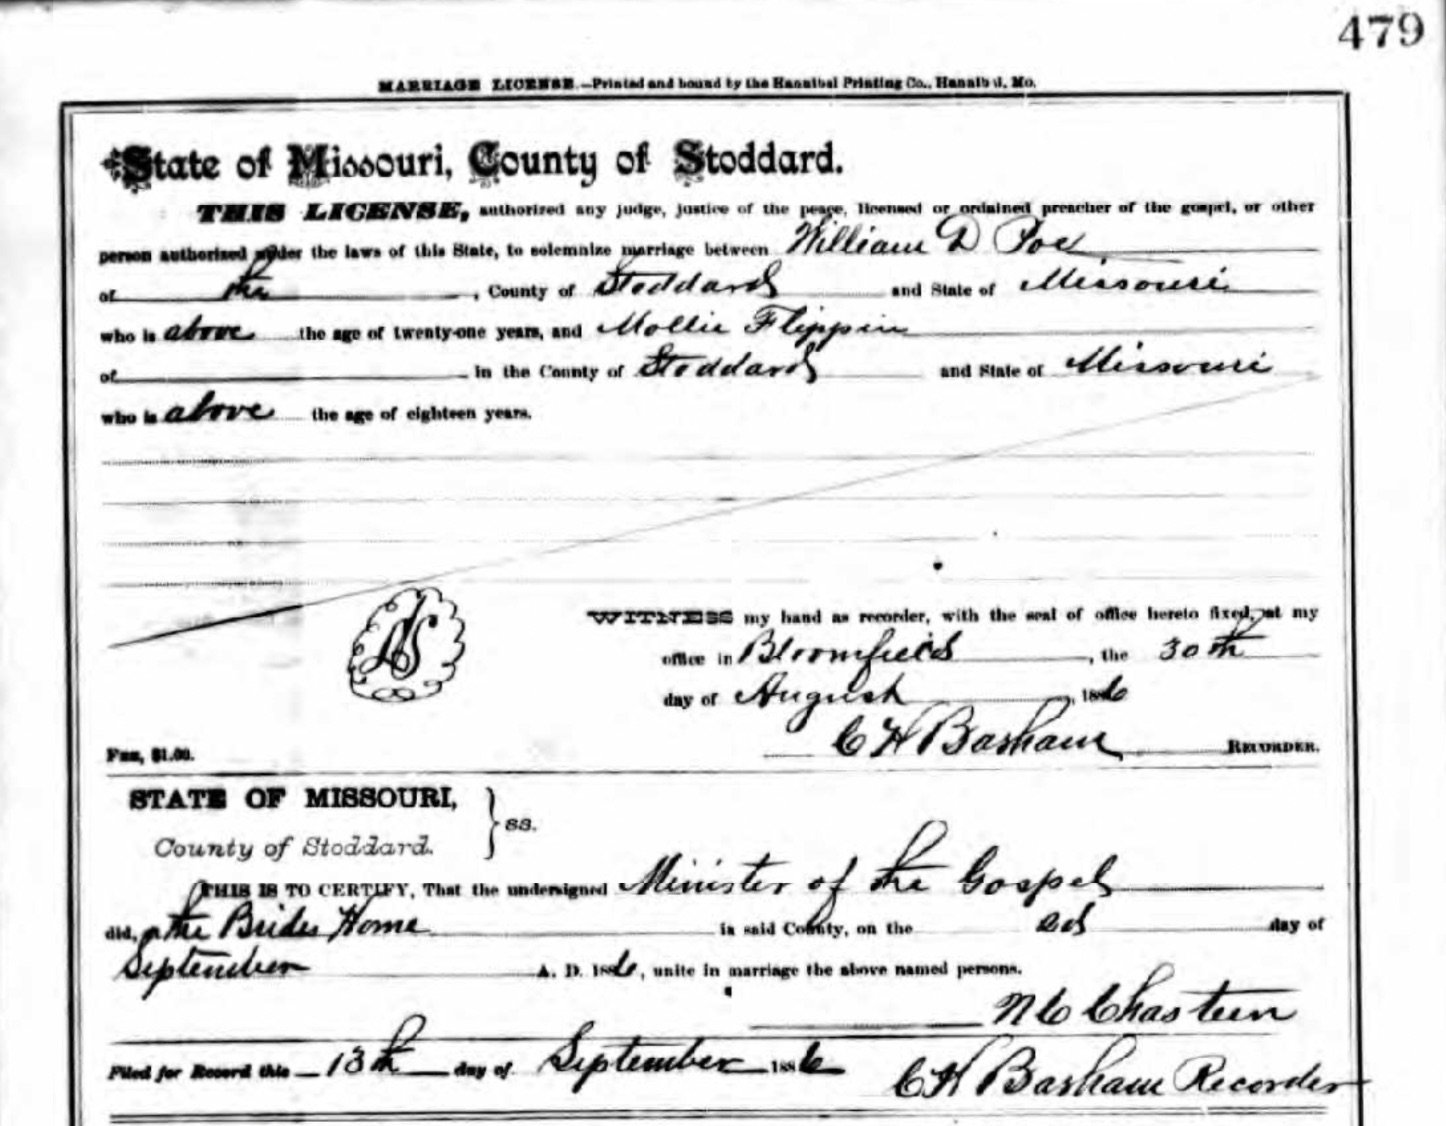 479
MARRIAGE LICENSE.—Printed and bound by the Hannibal Printing Co., Hannibal, Mo.
State of Missouri, County of Stoddard.
THIS LICENSE, authorized any judge, justice of the peace, licensed or ordained preacher of the gospel, or other
person authorized under the laws of this State, to solemnize marriage between William D Poe
of the , County of Stoddard and State of Missouri
who is above the age of twenty-one years, and Mollie Flippin
of in the County of Stoddard and State of Missouri
who is above the age of eighteen years.
LS
WITNESS my hand as recorder, with the seal of office hereto fixed, at my
office in Bloomfield, the 30th
day of August, 1886
C H Basham RECORDER.
Fee, $1.00.
STATE OF MISSOURI,
County of Stoddard. } ss.
THIS IS TO CERTIFY, That the undersigned Minister of the Gospel
did, at the Brides Home in said County, on the 2d day of
September A. D. 1886, unite in marriage the above named persons.
N C Chasteen
Filed for Record this 13th day of September 1886 C H Basham Recorder